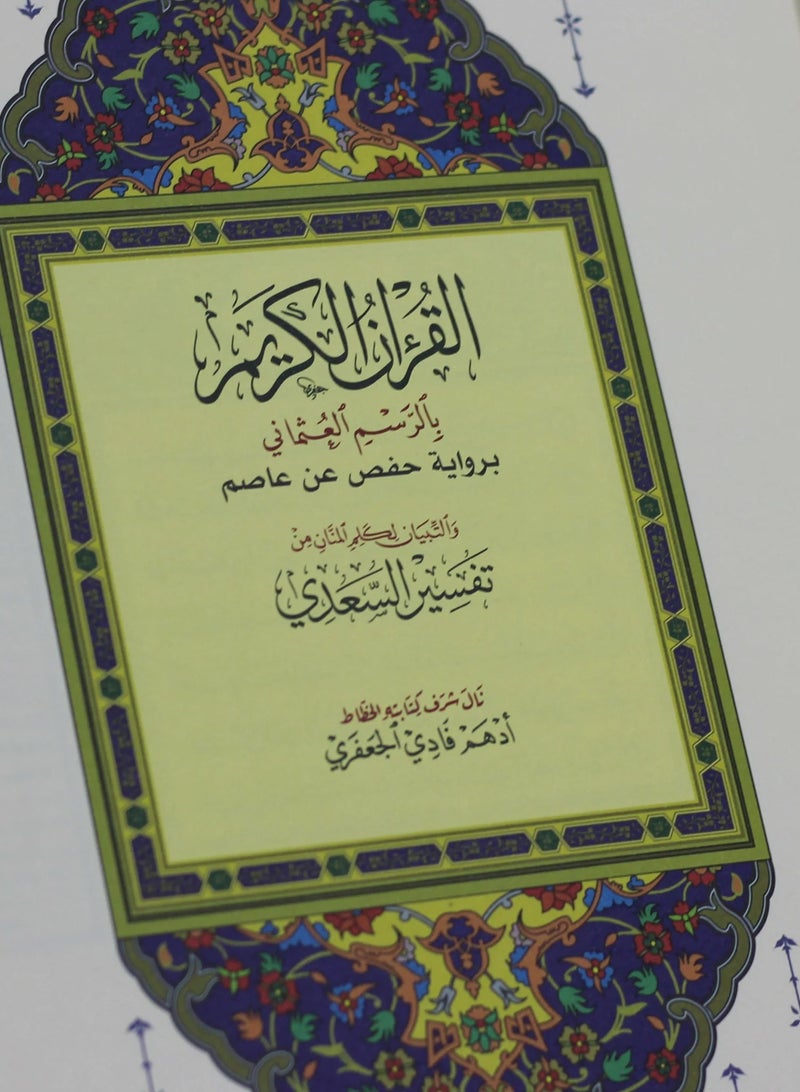 القُرْءَانُ الكَرِيمُ
بِٱلرَّسْمِ ٱلعُثْمَانِي
برواية حفص عن عاصم
وَالتِّبْيَان لِكَلِمِ المَنَّانِ مِنْ
تَفْسِيْرِ السَّعْدِي
نَالَ شَرَفَ كِتَابَتِهِ الخَطَّاط
أَدْهَمْ فَادِيْ ٱلجَعْفَرِيْ